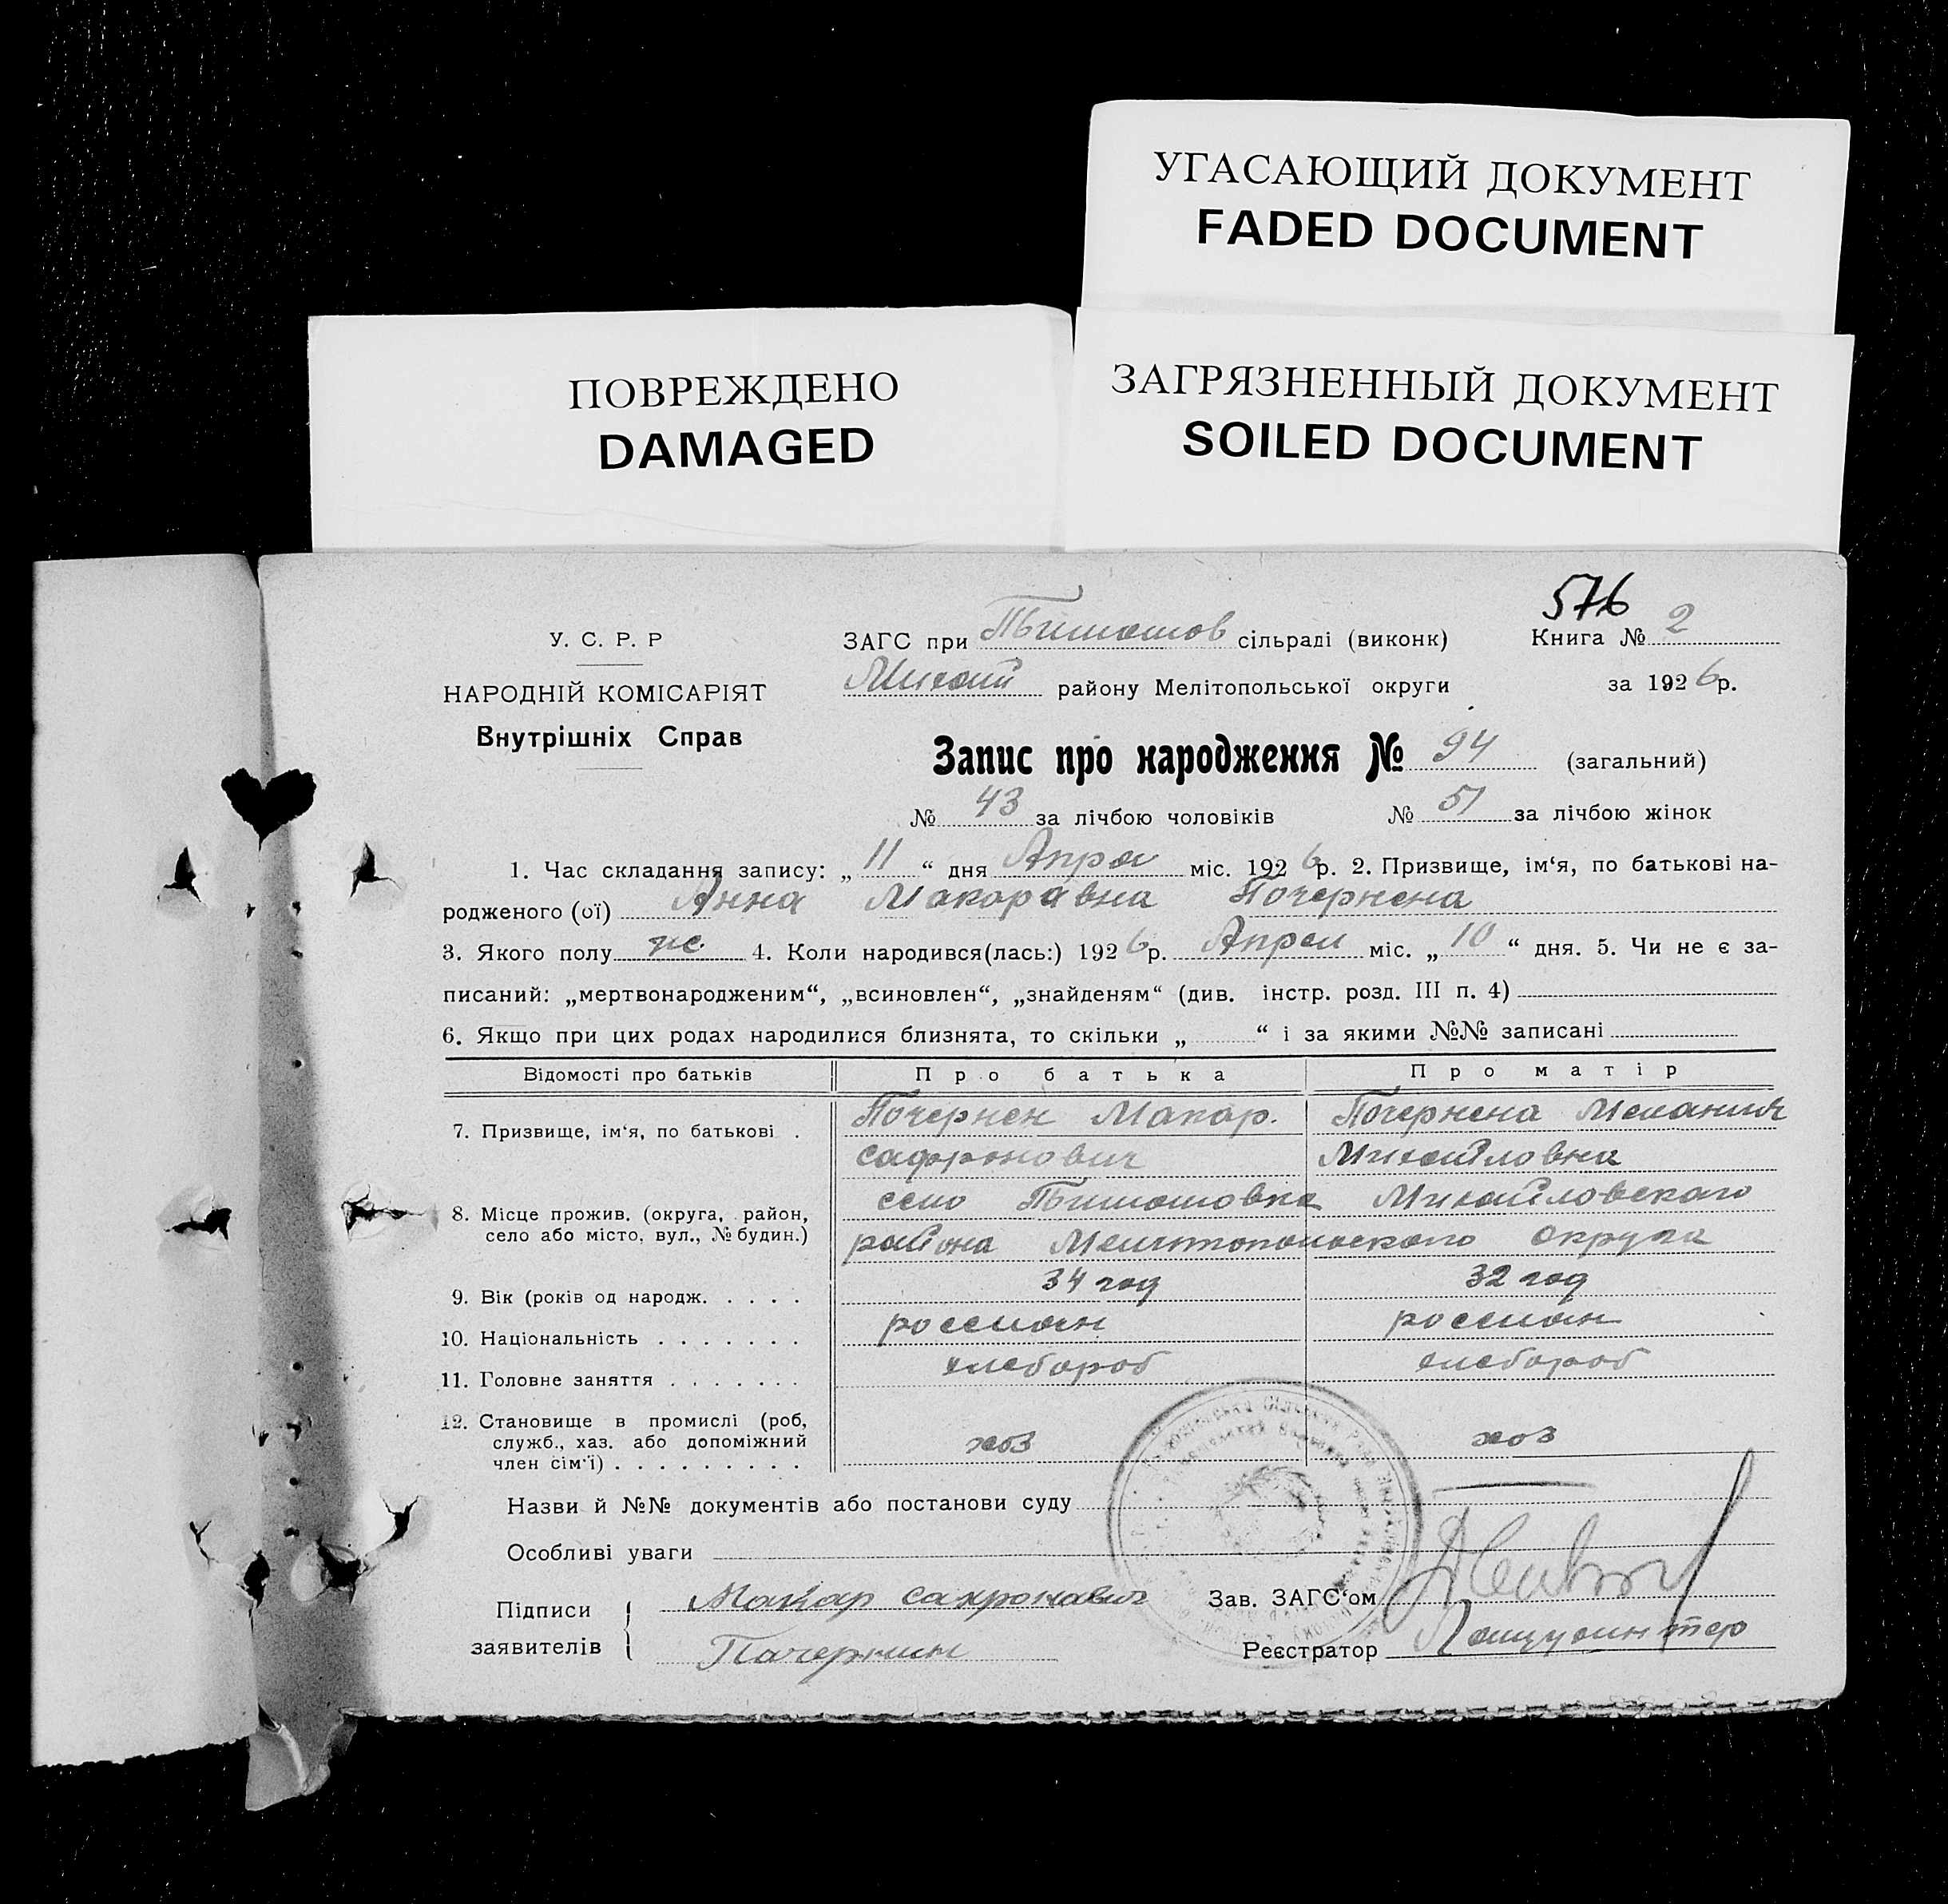 УГАСАЮЩИЙ ДОКУМЕНТ
FADED DOCUMENT
ПОВРЕЖДЕНО
DAMAGED
ЗАГРЯЗНЕННЫЙ ДОКУМЕНТ
SOILED DOCUMENT
576
У. С. Р. Р
ЗАГС при Тимошов сільраді (виконк) Книга № 2
НАРОДНІЙ КОМІСАРІЯТ
Михайл району Мелітопольської округи за 1926р.
Внутрішніх Справ
Запис про народження № 94 (загальний)
№ 43 за лічбою чоловіків № 51 за лічбою жінок
1. Час складання запису: „11“ дня Апрел міс. 1926р. 2. Призвище, ім‘я, по батькові на-
родженого (ої) Анна Макаравна Почернена
3. Якого полу ж 4. Коли народився(лась:) 1926р. Апрел міс. „10“ дня. 5. Чи не є за-
писаний: „мертвонародженим“, „всиновлен“, „знайденям“ (див. інстр. розд. III п. 4)
6. Якщо при цих родах народилися близнята, то скільки „ “ і за якими №№ записані
Відомості про батьків Про батька Про матір
7. Призвище, ім‘я, по батькові . Почернен Макар. Почернена Мелания
Сафронович Михайловна
8. Місце прожив. (округа, район, село або місто, вул., № будин.) село Тимошовка Михайловскаго
района Мелитопольскаго округа
9. Вік (років од народж. . . . . 34 год 32 год
10. Національність . . . . . . . россиян россиян
11. Головне заняття . . . . . . . хлебороб хлебороб
12. Становище в промислі (роб, служб., хаз. або допоміжний член сім‘ї) . . . . . . . . . хоз хоз
Назви й №№ документів або постанови суду
Особливі уваги
Підписи заявителів Макар сахронавич Зав. ЗАГС‘ом
Пачернин Реєстратор